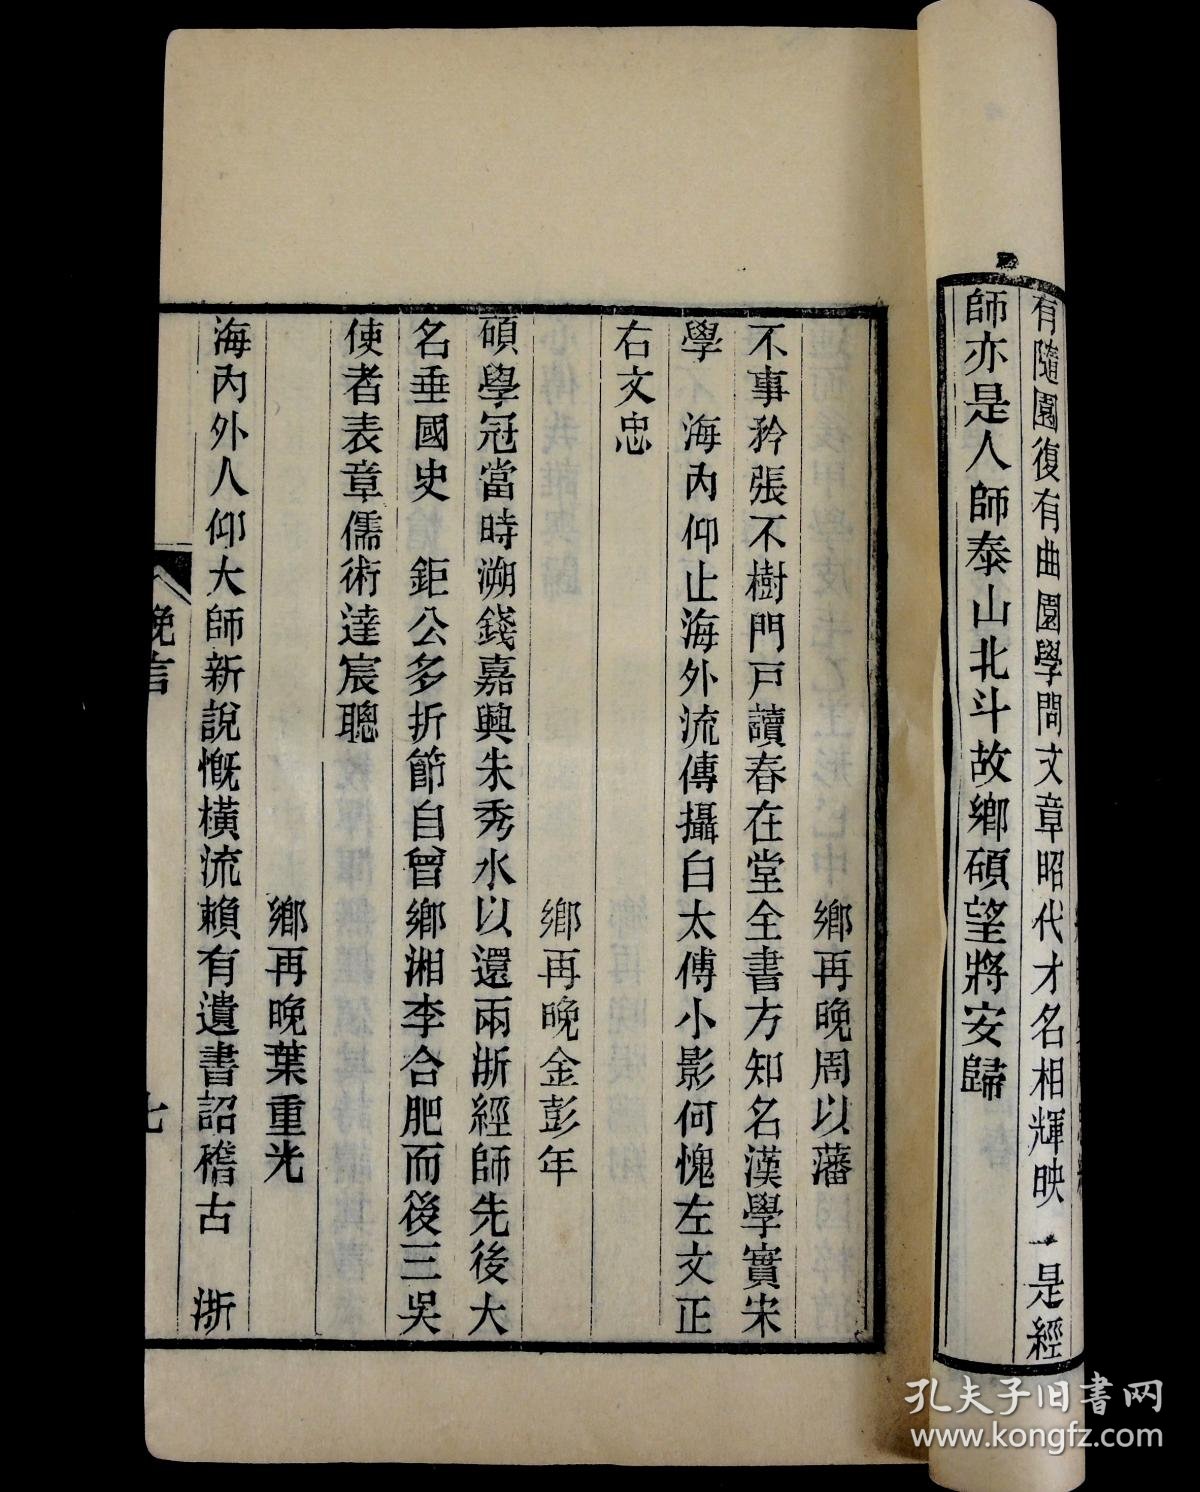 有隨園復有曲園學問文章昭代才名相輝映一是經
師亦是人師泰山北斗故鄉碩望將安歸
鄉再晚周以藩
不事矜張不樹門戸讀春在堂全書方知名漢學實宋
學　海內仰止海外流傳攝白太傅小影何愧左文正
右文忠
鄉再晚金彭年
碩學冠當時溯錢嘉興朱秀水以還兩浙經師先後大
名垂國史　鉅公多折節自曾鄉湘李合肥而後三吳
使者表章儒術達宸聰
鄉再晚葉重光
海內外人仰大師新說慨橫流賴有遺書詔稽古　浙
晚言
七
孔夫子旧书网
www.kongfz.com